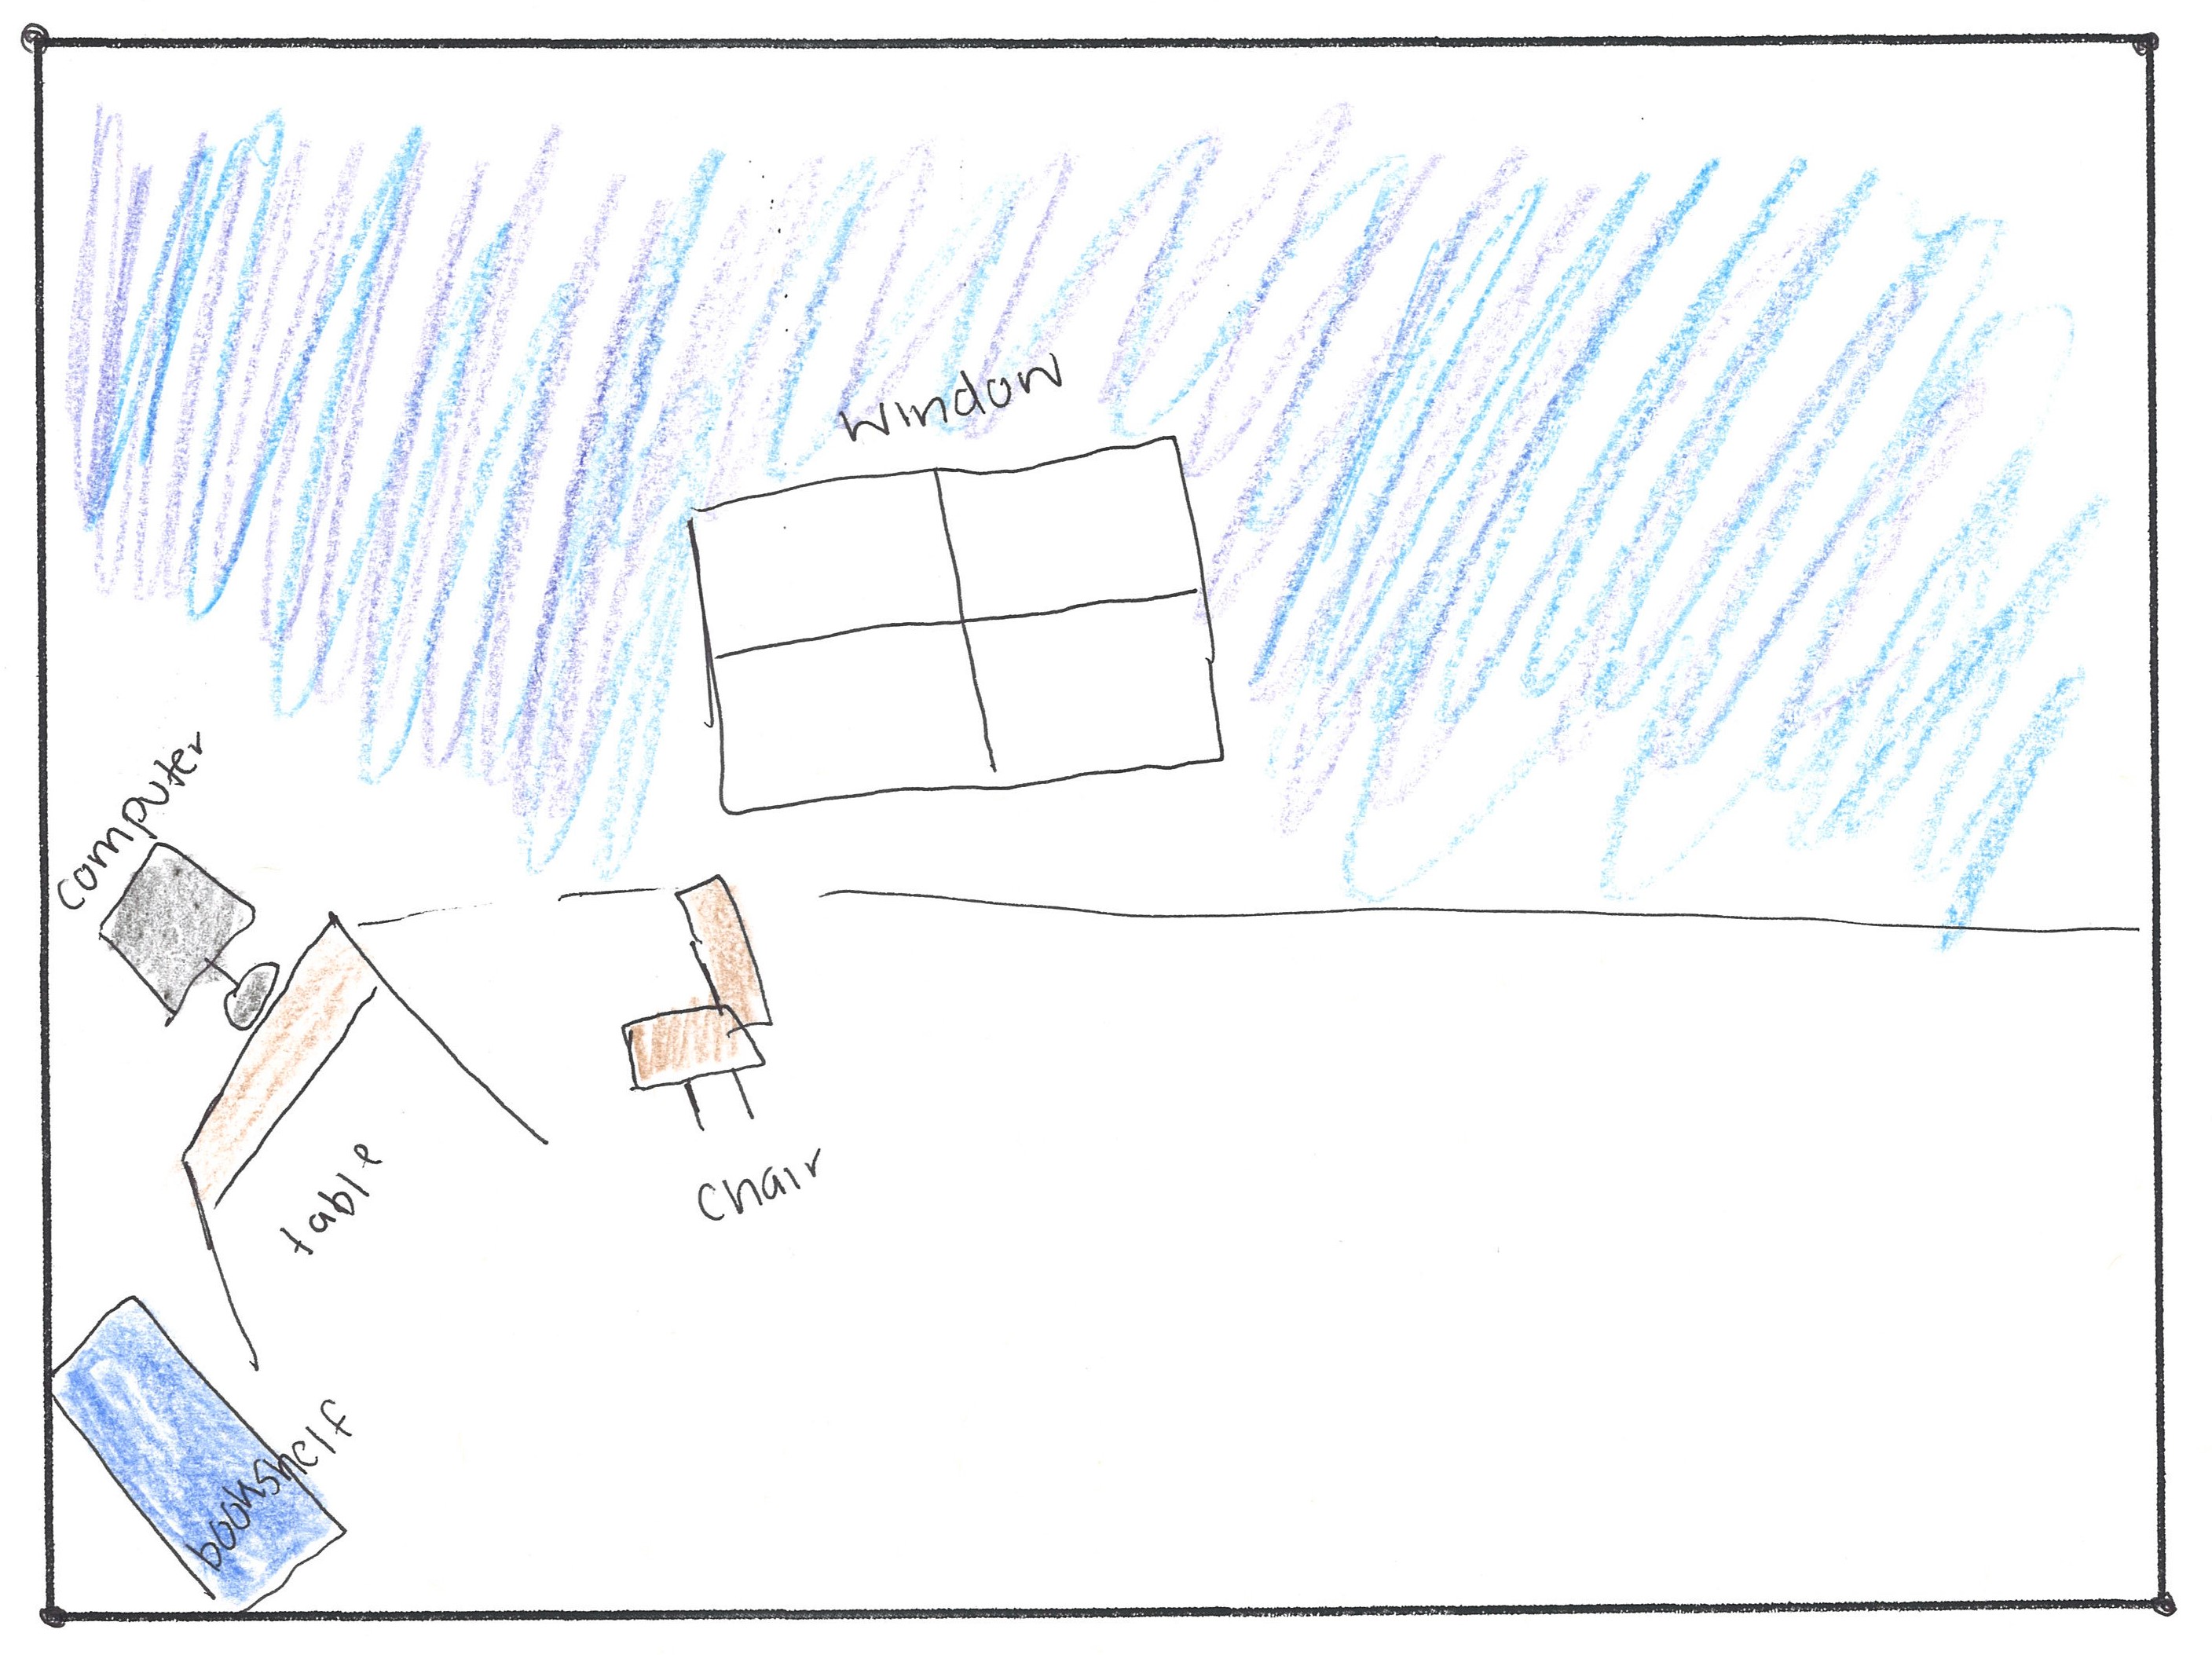 window
computer
table
chair
bookshelf